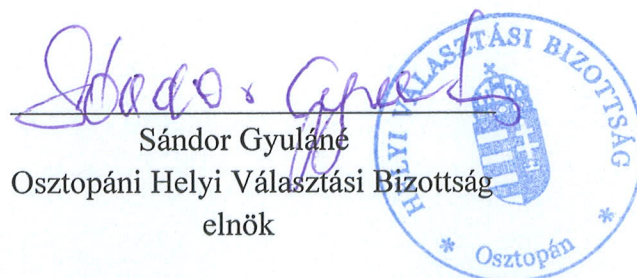 Sándor Gyuláné
Osztopáni Helyi Választási Bizottság
elnök
HELYI VÁLASZTÁSI BIZOTTSÁG
* Osztopán *